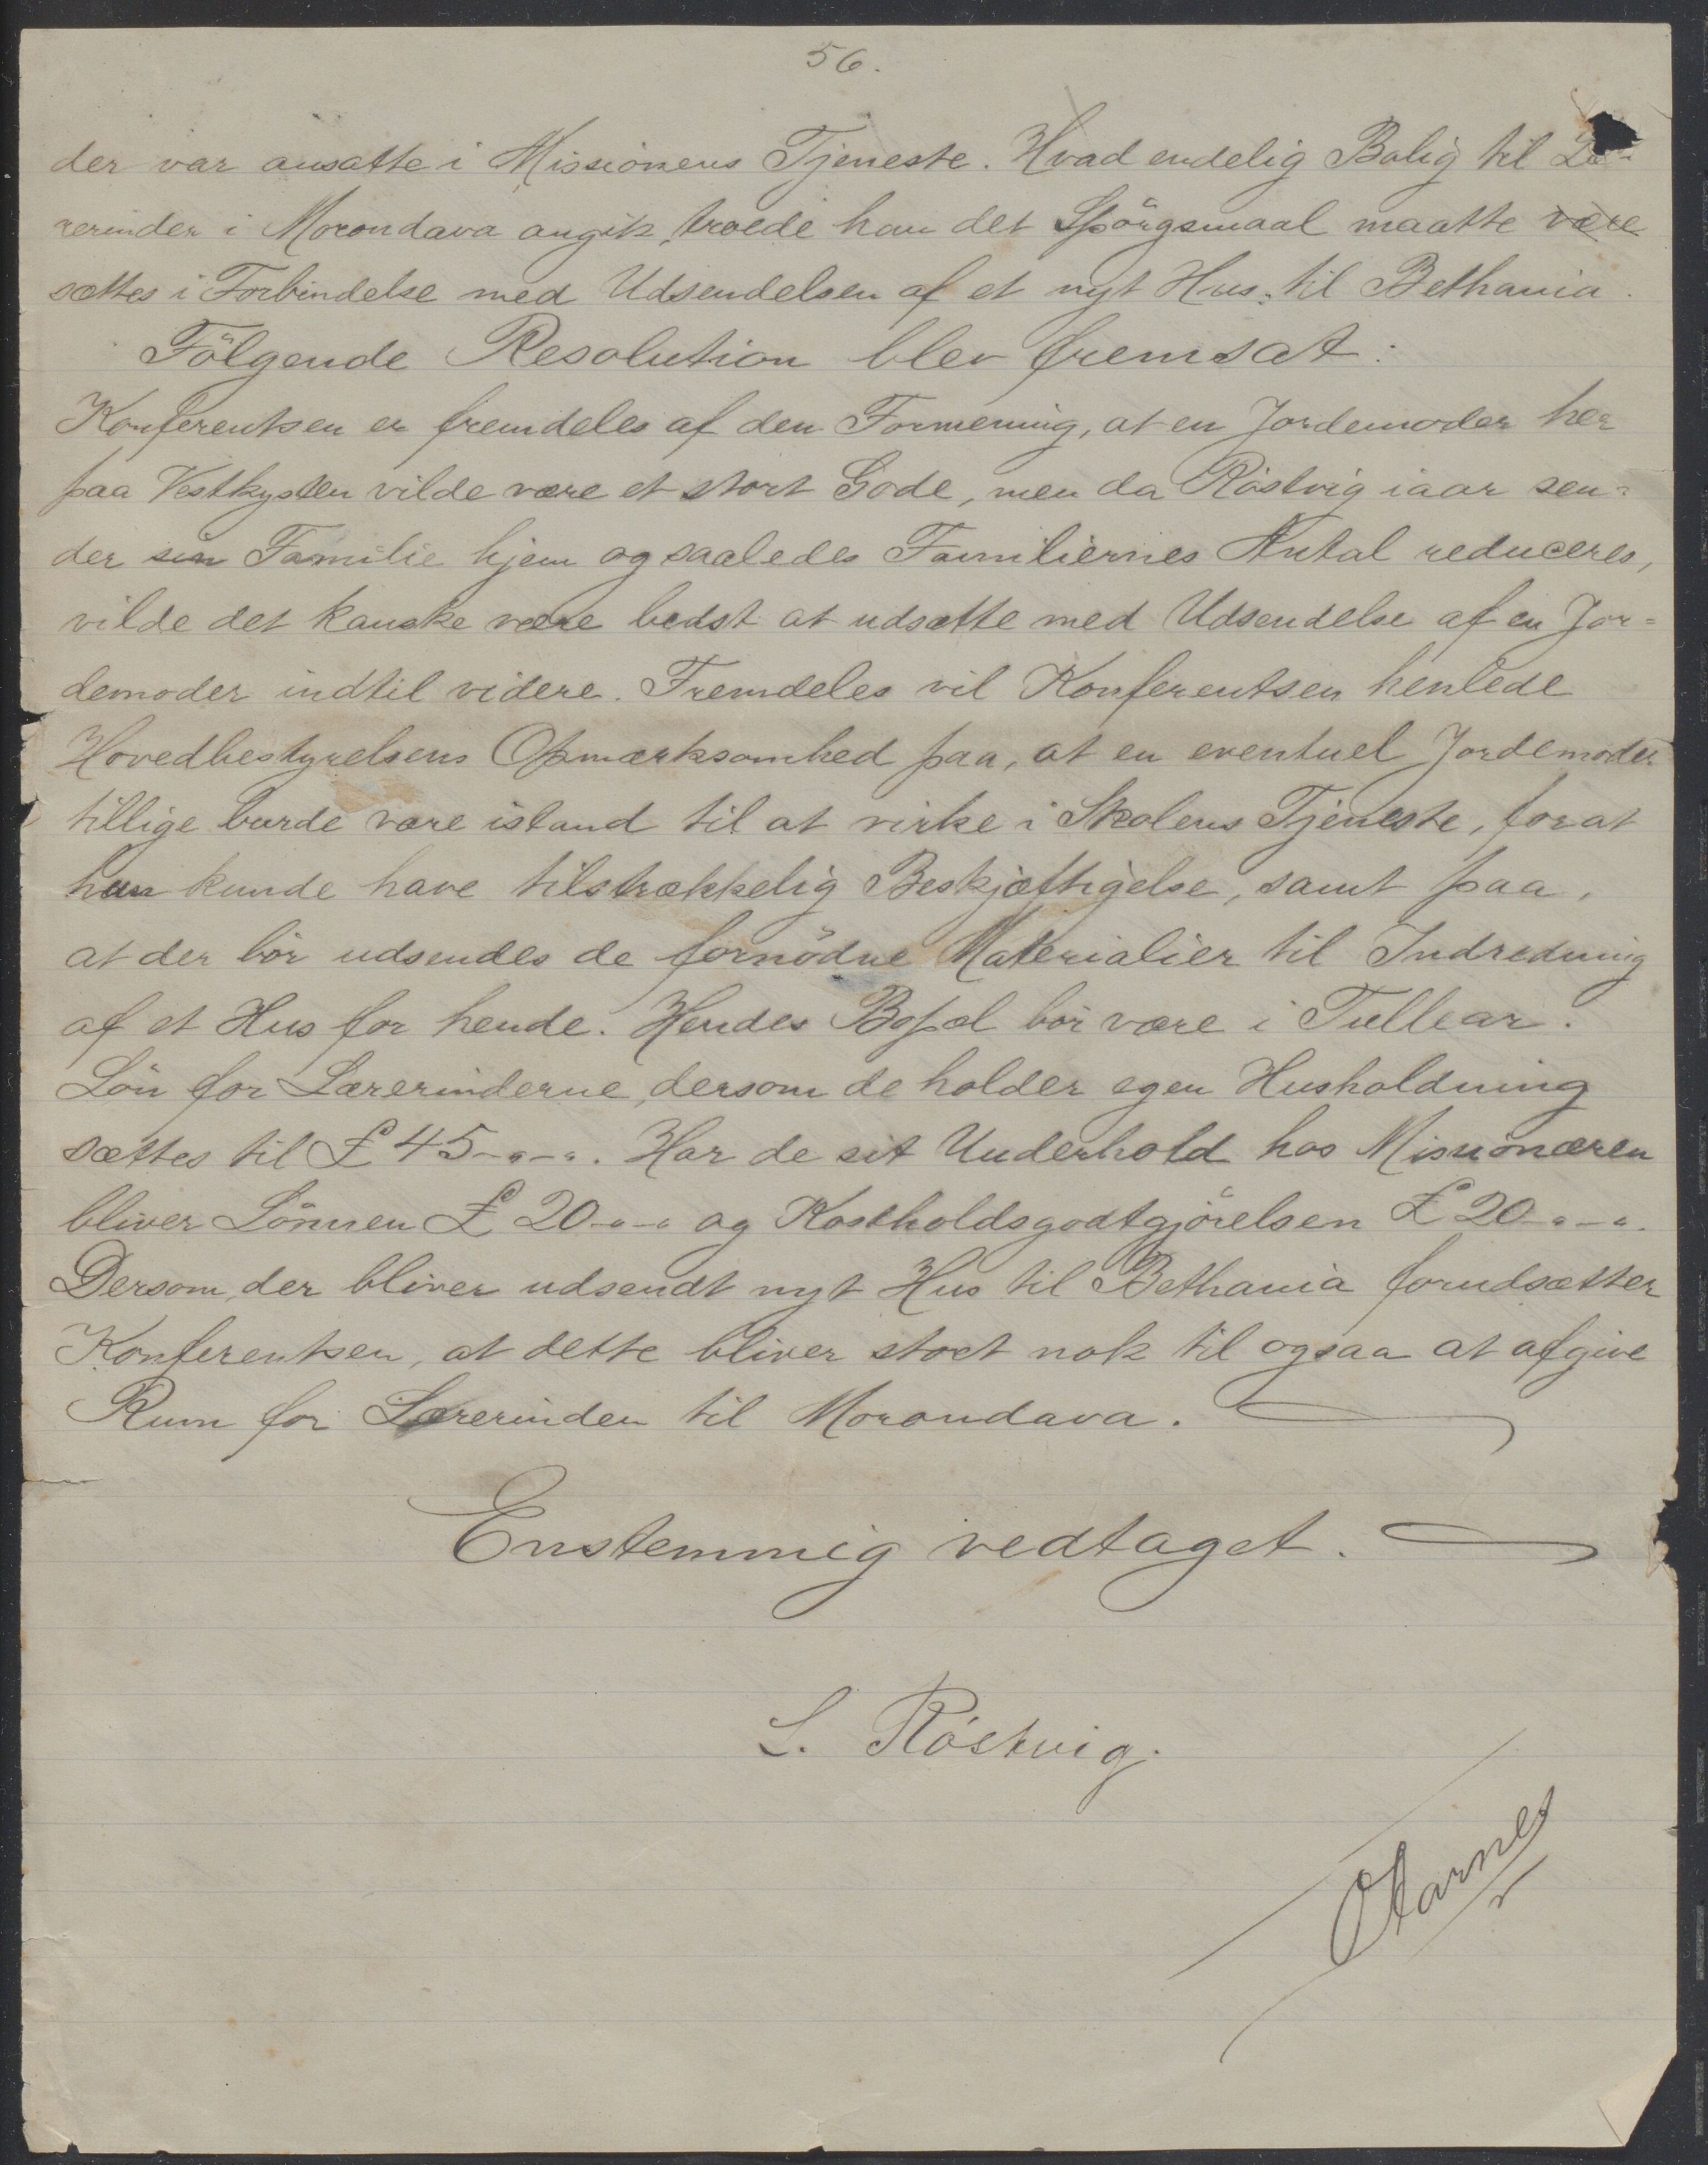 56.
der var ansatte i Missionens Tjeneste. Hvad endelig Bolig til Læ-
rerinder i Morondava angik, troede han det Spörgsmaal maatte være
sættes i Forbindelse med Udsendelsen af et nyt Hus til Bethania.
Fölgende Resolution blev fremsat:
Konferentsen er fremdeles af den Formening, at en Jordemoder her
paa Vestkysten vilde være et stort Gode, men da Röstvig iaar sen=
der sin Familie hjem og saaledes Familiernes Antal reduceres,
vilde det kanske være bedst at udsætte med Udsendelse af en Jor=
demoder indtil videre. Fremdeles vil Konferentsen henlede
Hovedbestyrelsens Opmærksomhed paa, at en eventuel Jordemoder
tillige burde være istand til at virke i Skolens Tjeneste, forat
hun kunde have tilstrækkelig Beskjæftigelse, samt paa,
at der bör udsendes de fornödne Materialier til Indredning
af et Hus for hende. Hendes Bopæl bör være i Tullear.
Lön for Lærerinderne, dersom de holder egen Husholdning
sættes til £ 45-"-". Har de sit Underhold hos Missionæren
bliver Lönnen £ 20-"-" og Kostholdsgodtgjörelsen £ 20-"-".
Dersom der bliver udsendt nyt Hus til Bethania forudsætter
Konferentsen, at dette bliver stort nok til ogsaa at afgive
Rum for Lærerinden til Morondava.
Enstemmig vedtaget.
L. Röstvig.